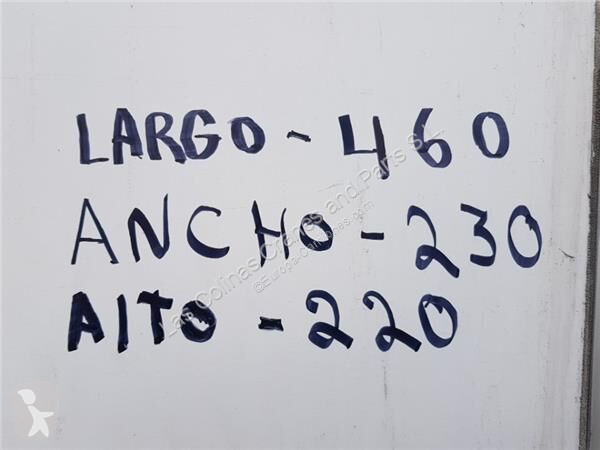 LARGO - 460
ANCHO - 230
AlTO - 220
Las Colinas Cranes and Parts S.L.
©Europa-Camiones.com